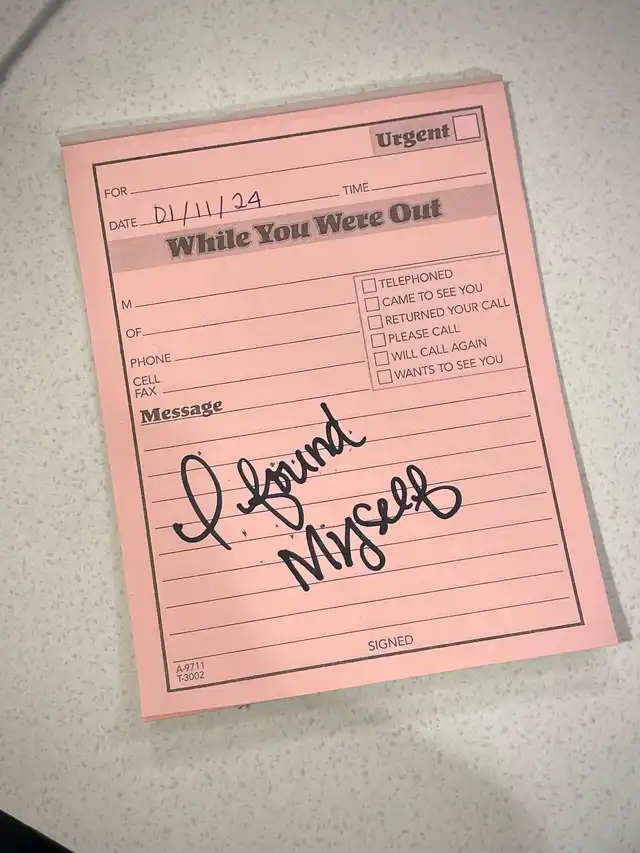 Urgent
FOR
DATE 01/11/24 TIME
While You Were Out
M
OF
PHONE
CELL
FAX
TELEPHONED
CAME TO SEE YOU
RETURNED YOUR CALL
PLEASE CALL
WILL CALL AGAIN
WANTS TO SEE YOU
Message
I found
Myself
SIGNED
A-9711
T-3002